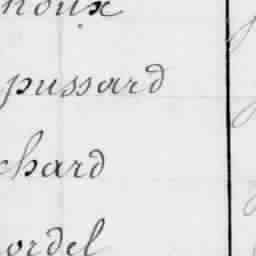 noux
pussard
chard
ordel